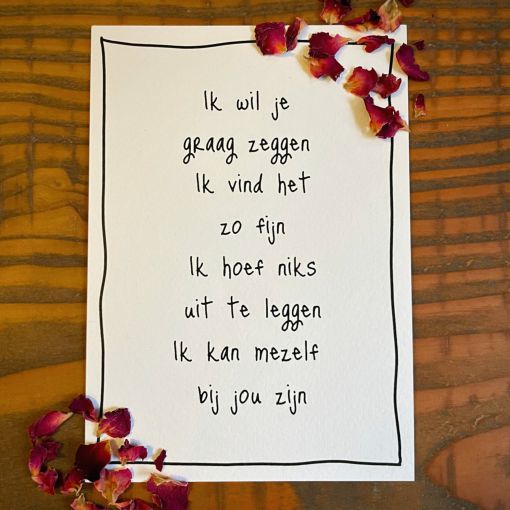 Ik wil je
graag zeggen
Ik vind het
zo fijn
Ik hoef niks
uit te leggen
Ik kan mezelf
bij jou zijn